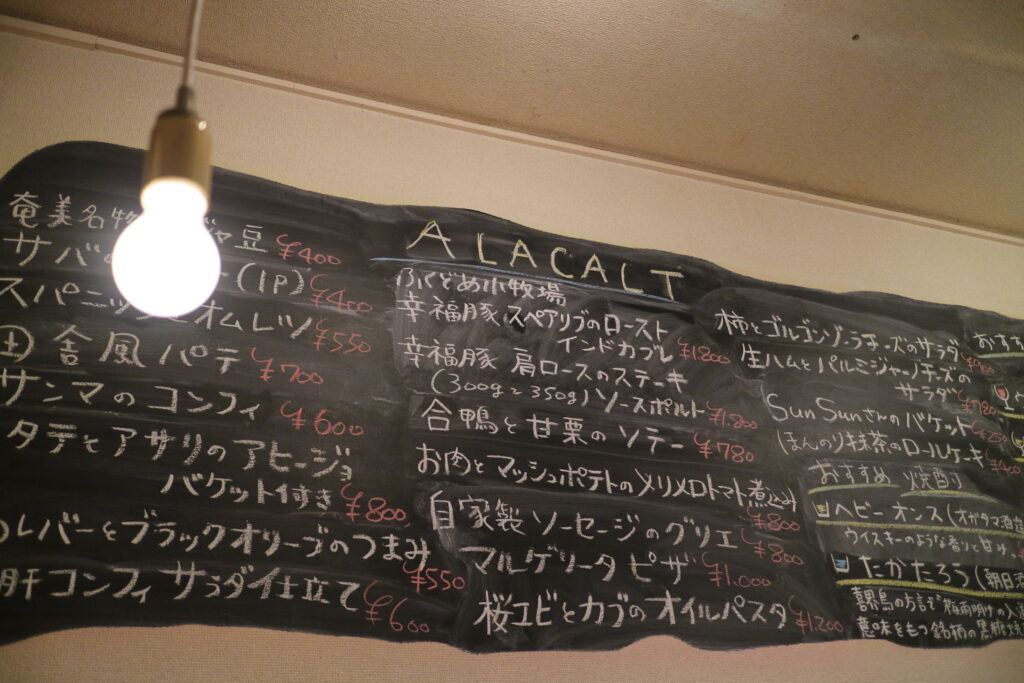 奄美名物 豆 ¥400
サバ (1P) ¥400
スパニッシュオムレツ ¥550
田舎風パテ ¥700
サンマのコンフィ ¥600
タテとアサリのアヒージョ
バケット付き ¥800
レバーとブラックオリーブのつまみ ¥550
肝コンフィ サラダ仕立て ¥600
ALACALT
ふくどめ小牧場
幸福豚 スペアリブのロースト
インドカプレ ¥1800
幸福豚 肩ロースのステーキ
(300g~350g) ソースポルト ¥1.800
合鴨と甘栗のソテー ¥780
お肉とマッシュポテトのメリメロトマト煮込み ¥800
自家製ソーセージのグリエ ¥800
マルゲリータピザ ¥1.000
桜エビとカブのオイルパスタ ¥1.200
柿とゴルゴンゾーラチーズのサラダ ¥900
生ハムとパルミジャーノチーズの
サラダ ¥780
SunSunさんのバケット ¥250
ほんのり抹茶のロールケーキ ¥400
おすすめ 焼酎
ヘビーオンス(オガタマ酒造
ウイスキーのような香りと甘み
たかたろう(朝日酒
喜界島の方言で梅雨明けの入道
意味をもつ銘柄の黒糖焼
おすすめ